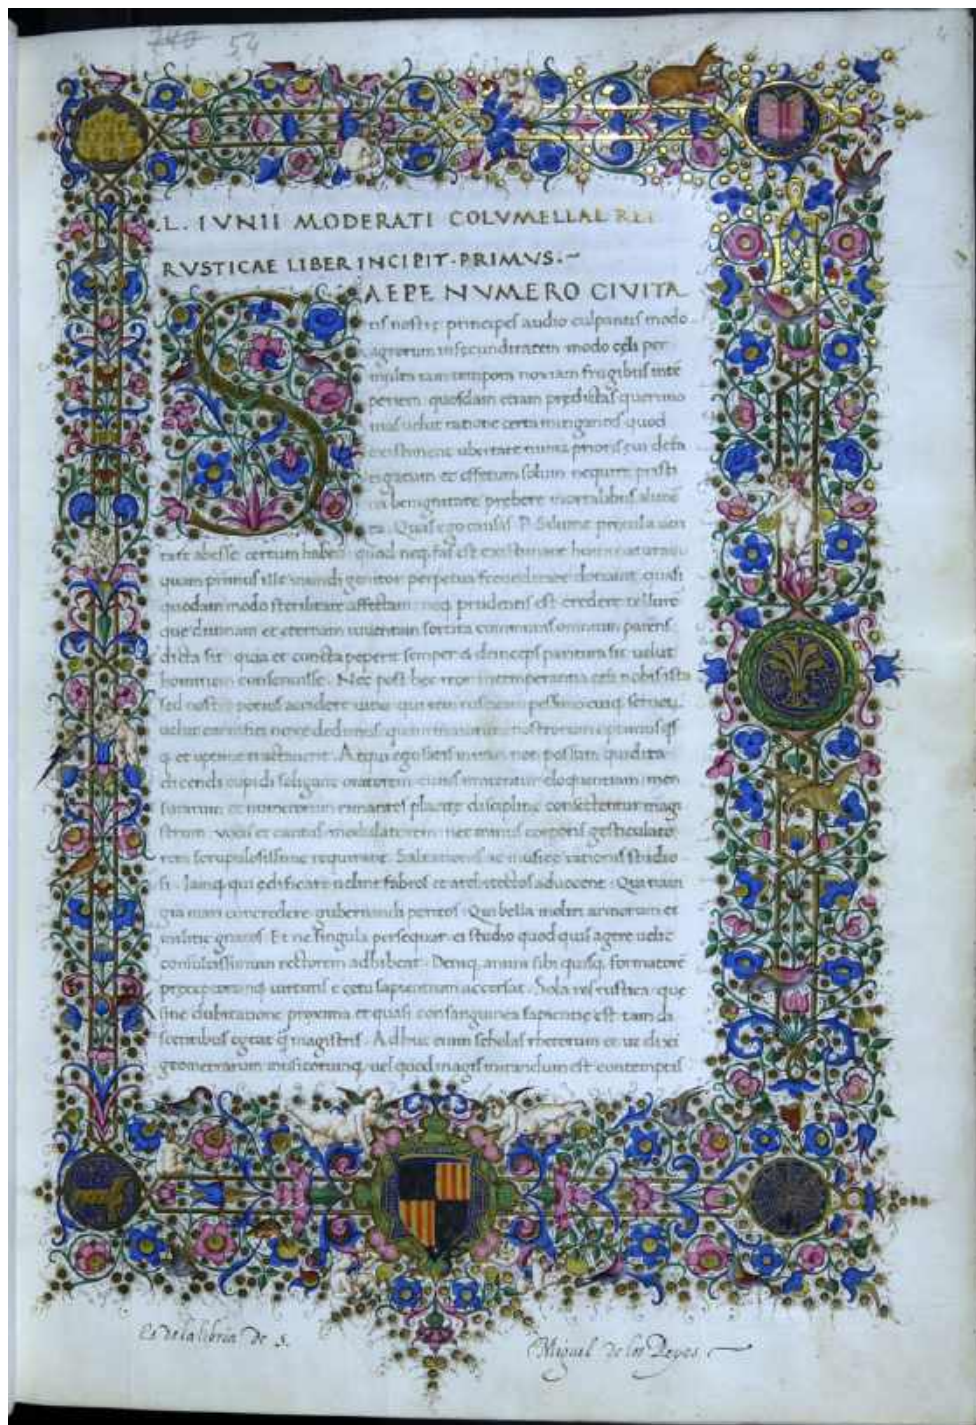 740 54
L. IVNII MODERATI COLVMELLAE REI
RVSTICAE LIBER INCIPIT. PRIMVS.~
SAEPE NVMERO CIVITA
tis nostre principes audio culpantis modo
agrorum infecunditatem modo celi per
multa iam tempora noxiam frugibus inte
periem quosdam etiam predictas querimo
nias uelut ratione certa mitigantes quod
existiment ubertate nimia prioris eui defa
tigatum et effetum solum nequire pristi
na benignitate prebere mortalibus alime
ta. Quas ego causas P. Silvine procul a ueri
tate abesse certum habeo quod neq fas est existimare
quam primus ille mundi genitor perpetua fecunditate donauit quasi
quodam modo sterilitate affectam neq prudentis est credere tellure
que diuinam et eternam iuuentam sortita communis omnium parens
dicta sit quia et cuncta peperit semper et deinceps paritura sit uelut
hominem consenuisse. Nec post hec reor intemperantia celi nobis ista
sed nostro potius accidere uitio qui rem rusticam pessimo cuiq seruoru
uelut carnifici noxe dedimus quam maiorum nostrorum optimus
q et optime tractauerit. Atqui ego satis mirari non possum quid ita
dicendi cupidi seligant oratorem cuius imitentur eloquentiam men
surarum et numerorum rimantes placite discipline consectentur magi
strum uocis et cantus modulatorem nec minus corporis gesticulato
rem scrupulosissime requirant Saltationis ac musice rationis studio
si. Iamq qui edificare uelint fabros et architectos aduocent. Qui naui
gia mari concredere gubernandi peritos. Qui bella moliri armorum et
militie gnaros. Et ne singula persequar ei studio quod quis agere uelit
consultissimum rectorem adhibeat. Deniq animi sibi quisq formatore
preceptoremq uirtutis e cetu sapientium accersat. Sola res rustica que
sine dubitatione proxima et quasi consanguinea sapientie est tam di
scentibus egeat q magistris. Adhuc enim scholas rhetorum et ut dixi
geometrarum musicorumq uel quod magis mirandum est contemptis
Es de la libria de S. Miguel de los Reyes